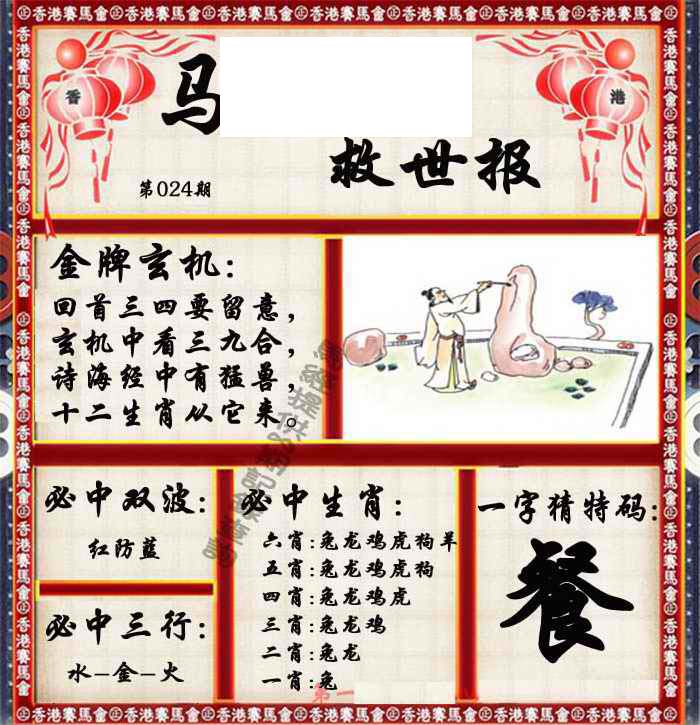 香港賽馬會
香
港
马
救世报
第024期
金牌玄机:
回首三四要留意,
玄机中看三九合,
诗海经中有猛兽,
十二生肖从它来。
必中双波:
红防蓝
必中三行:
水-金-火
必中生肖:
六肖:兔龙鸡虎狗羊
五肖:兔龙鸡虎狗
四肖:兔龙鸡虎
三肖:兔龙鸡
二肖:兔龙
一肖:兔
第一
一字猜特码:
餐